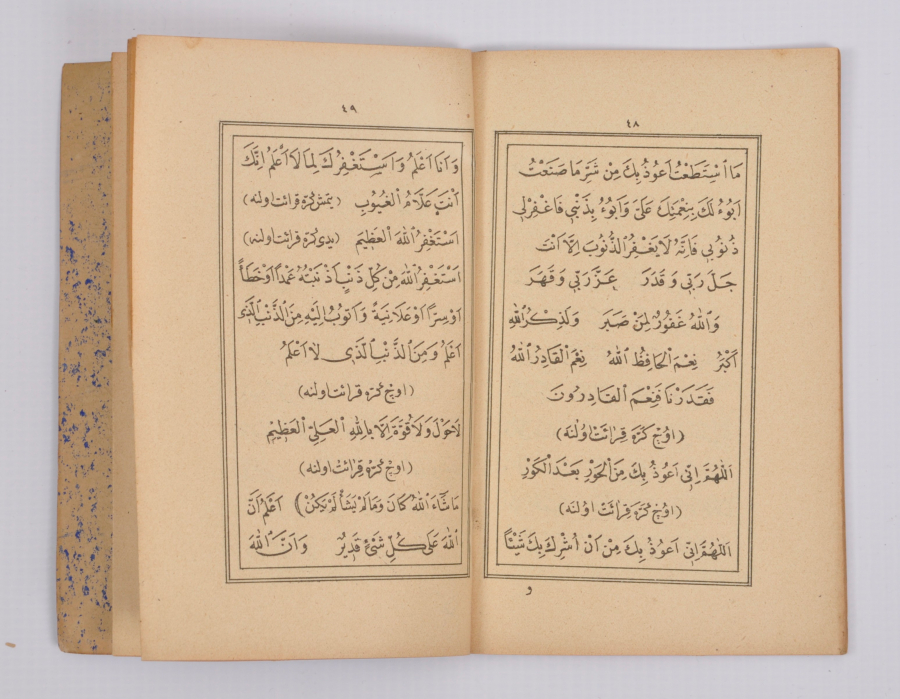 ٤٨
مَا اسْتَطَعْتُ اَعُوذُ بِكَ مِنْ شَرِّ مَا صَنَعْتُ
اَبُوءُ لَكَ بِنِعْمَتِكَ عَلَىَّ وَاَبُوءُ بِذَنْبِي فَاغْفِرْلِي
ذُنُوبِي فَاِنَّهُ لَا يَغْفِرُ الذُّنُوبَ اِلَّا اَنْتَ
جَلَّ رَبِّي وَقَدَرَ عَزَّ رَبِّي وَقَهَرَ
وَاللّٰهُ غَفُورٌ لِمَنْ صَبَرَ وَلَذِكْرُ اللّٰهِ
اَكْبَرُ نِعْمَ الْحَافِظُ اللّٰهُ نِعْمَ الْقَادِرُ اللّٰهُ
فَقَدَرْنَا فَنِعْمَ الْقَادِرُونَ
(اوچ كرّه قرائت اولنه)
اَللّٰهُمَّ اِنِّي اَعُوذُ بِكَ مِنَ الْحَوْرِ بَعْدَ الْكَوْرِ
(اوچ كرّه قرائت اولنه)
اَللّٰهُمَّ اِنِّي اَعُوذُ بِكَ مِنْ اَنْ اُشْرِكَ بِكَ شَيْئًا
و
٤٩
وَاَنَا اَعْلَمُ وَاَسْتَغْفِرُكَ لِمَا لَا اَعْلَمُ اِنَّكَ
اَنْتَ عَلَّامُ الْغُيُوبِ (يتمش كرّه قرائت اولنه)
اَسْتَغْفِرُ اللّٰهَ الْعَظِيمَ (يدى كرّه قرائت اولنه)
اَسْتَغْفِرُ اللّٰهَ مِنْ كُلِّ ذَنْبٍ اَذْنَبْتُهُ عَمْدًا اَوْ خَطَأً
اَوْ سِرًّا اَوْ عَلَانِيَةً وَاَتُوبُ اِلَيْهِ مِنَ الذَّنْبِ الَّذِى
اَعْلَمُ وَمِنَ الذَّنْبِ الَّذِى لَا اَعْلَمُ
(اوچ كرّه قرائت اولنه)
لَاحَوْلَ وَلَا قُوَّةَ اِلَّا بِاللّٰهِ الْعَلِىِّ الْعَظِيمِ
(اوچ كرّه قرائت اولنه)
مَا شَاءَ اللّٰهُ كَانَ وَمَا لَمْ يَشَأْ لَمْ يَكُنْ) اَعْلَمُ اَنَّ
اللّٰهَ عَلَى كُلِّ شَىْءٍ قَدِيرٌ وَاَنَّ اللّٰهَ